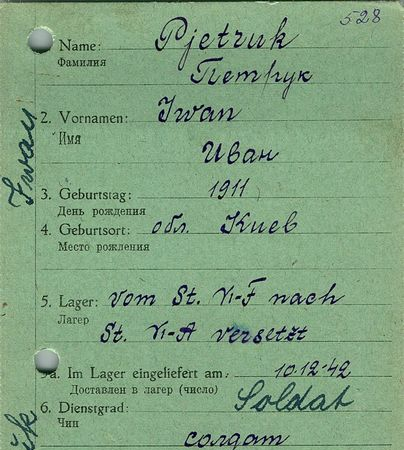 528
Name: Pjetruk
Фамилия
Петрук
2. Vornamen: Iwan
Имя
Иван
Iwan
3. Geburtstag: 1911
День рождения
4. Geburtsort: обл. Киев
Место рождения
5. Lager: vom St. VI-F nach
Лагер
St. VI-A versetzt
5a. Im Lager eingeliefert am: 10.12.42
Доставлен в лагер (число)
6. Dienstgrad: Soldat
Чин
солдат